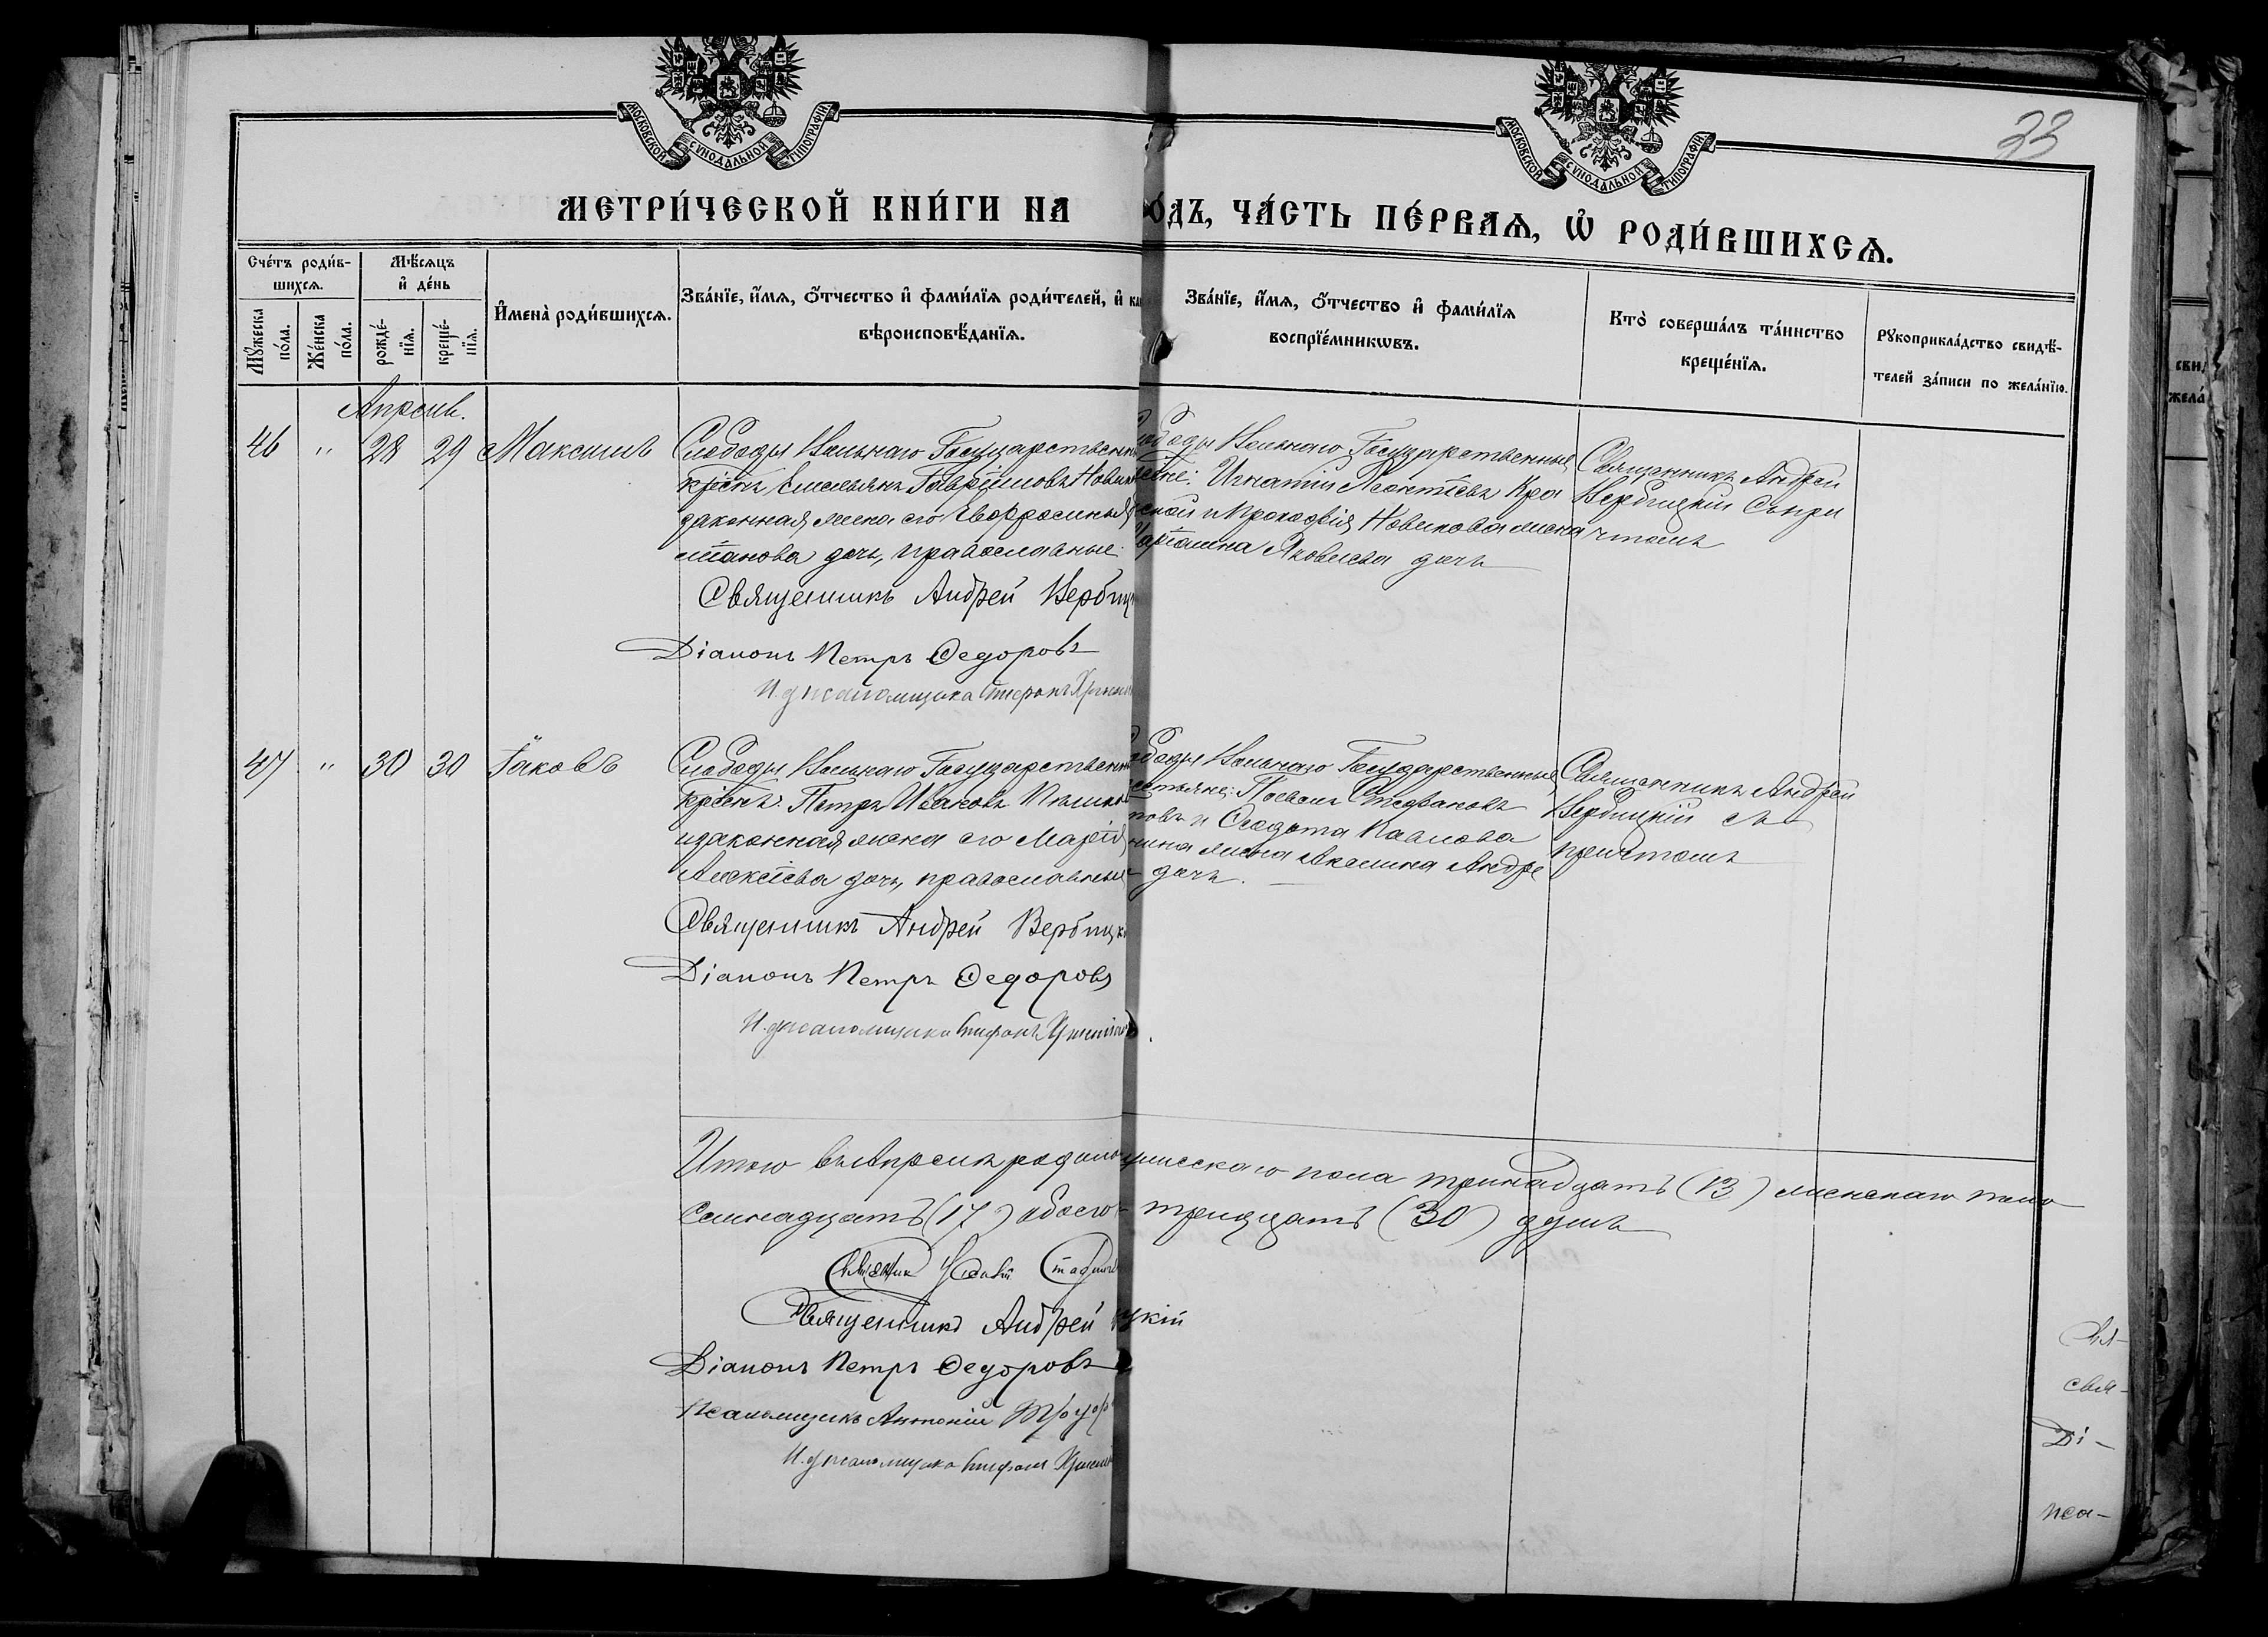 МОСКОВСКОЙ СУНОДАЛЬНОЙ ТИПОГРАФІИ.
МОСКОВСКОЙ СУНОДАЛЬНОЙ ТИПОГРАФІИ.
33
МЕТРИ́ЧЕСКОЙ КНИ́ГИ НА
О́ДЪ, ЧА́СТЬ ПЕ́РВАѦ, Ѽ РОДИ́ВШИХСѦ.
Сче́тъ роди́в-
шихсѧ.
Мꙋ́жеска по́ла.
Же́нска по́ла.
Мѣ́сѧцъ
и҆ де́нь
рожде́-
нїѧ.
креще́-
нїѧ.
И҆мена̀ роди́вшихсѧ.
Зва́нїе, и҆́мѧ, ѻ҆́тчество и҆ фами́лїѧ роди́телей, и҆
вѣроисповѣ́данїѧ.
Зва́нїе, и҆́мѧ, ѻ҆́тчество и҆ фами́лїѧ
воспрїе́мникѡвъ.
Кто̀ соверша́лъ та́инство
креще́нїѧ.
Рꙋкоприкла́дство свидѣ́-
телей за́писи по жела́нїю.
Апрель.
46 " 28 29 Максимъ
Слободы Вольнаго Государственн
крестн: Емельянъ Гавріиловъ Новик
законная жена его Евфросинья
станова дочь, православные.
Священникъ Андрей Вербиц
Діаконъ Петръ Ѳедоровъ
И. д. псаломщика
ободы Вольнаго Государственные
Игнатій Леонтіевъ Кра
ской и Прокофія Новикова жена
Яковлева дочь
Священникъ Андрей
Вербицкій съ при
чтомъ
47 " 30 30 Іаковъ
Слободы Вольнаго Государствен
крестн: Петръ Ивановъ
и законная жена его Марія
Алексіева дочь, православные
Священникъ Андрей Вербицк
Діаконъ Петръ Ѳедоровъ
И. д. псаломщика
ободы Вольнаго Государственные
естьяне: Стефановъ
повъ и Ѳедота Павлова
нина жена Акилина Андре
дочь.
Священникъ Андрей
Вербицкій съ
причтомъ
Итого въ Апрелѣ родило мужескаго пола тринадцать (13) женскаго пола
семнадцать (17) обоего тридцать (30) душъ
Священникъ
Священникъ Андрей цкій
Діаконъ Петръ Ѳедоровъ
Псаломщикъ Антоній
И. д. псаломщика
Свя-
Ді-
пса-